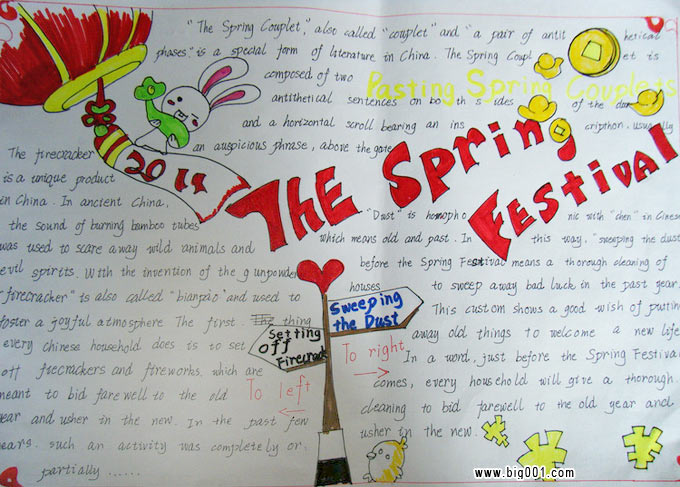 "The Spring Couplet," also called "couplet" and "a pair of antit hetical
phases" is a special form of literature in China. The Spring Coupl et is
composed of two
antithetical sentences on bo th s ides of the door
and a horizontal scroll bearing an ins cription, usually
an auspicious phrase, above the gate
Pasting Spring Couplets
The Spring
Festival
2011
The firecracker
is a unique product
in China. In ancient China,
the sound of burning bamboo tubes
was used to scare away wild animals and
evil spirits. With the invention of the gunpowder
"firecracker" is also called "bianpao" and used to
foster a joyful atmosphere. The first thing
every chinese household does is to set
off firecrackers and fireworks, which are
meant to bid farewell to the old
year and usher in the new. In the past few
years, such an activity was completely or
partially ......
Setting
off
Firecrack
To left
Sweeping
the Dust
To right
"Dust" is homopho nic with "chen" in Cinese
which means old and past. In this way, "sweeping the dust
before the Spring Festival means a thorough cleaning of
houses to sweep away bad luck in the past year.
This custom shows a good wish of putting
away old things to welcome a new life
In a word, just before the Spring Festival
comes, every household will give a thorough
cleaning to bid farewell to the old year and
usher in the new.
www.big001.com